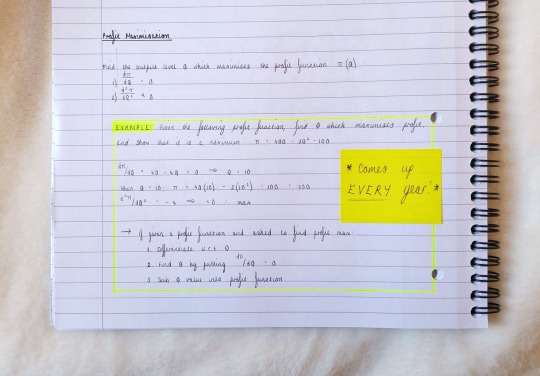 Profit Maximisation
Find the output level Q which maximises the profit function π(Q)
1) dπ/dQ = 0
2) d²π/dQ² < 0
EXAMPLE: Given the following profit function, find Q which maximises profit,
and show that it is a maximum π = 40Q - 2Q² - 100
dπ/dQ = 40 - 4Q = 0 ⇒ Q = 10
When Q = 10, π = 40(10) - 2(10²) - 100 = 100
d²π/dQ² = -4 ⇒ <0 = max
* comes up
EVERY year! *
→ If given a profit function and asked to find profit max:
1. Differentiate w.r.t. Q
2. Find Q by putting dπ/dQ = 0
3. Sub Q value into profit function